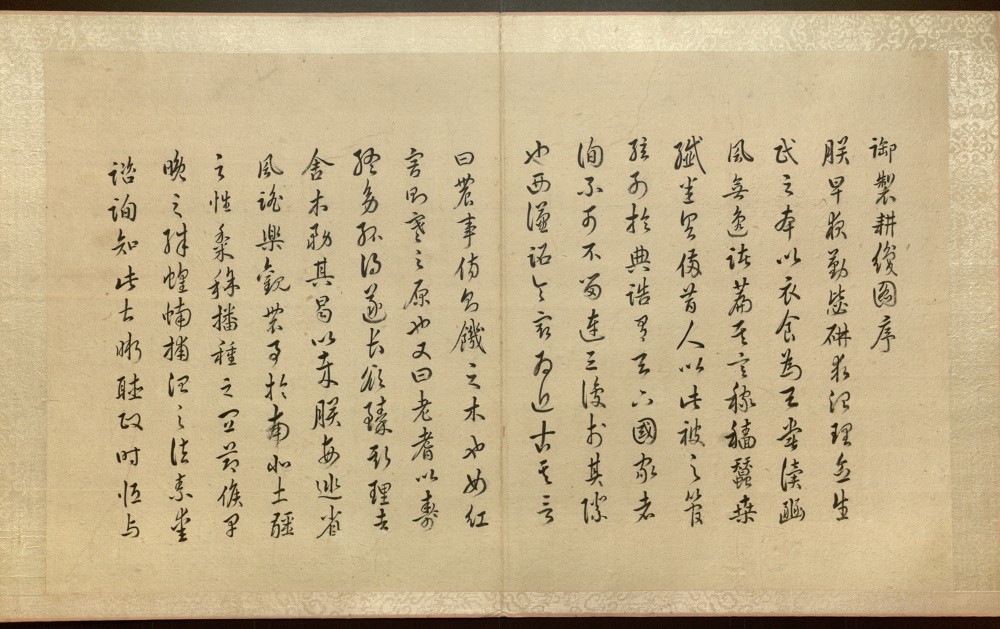 御製耕織圖序
朕早夜勤毖研求治理念生
民之本以衣食為天嘗讀豳
風無逸諸篇其言稼穡蠶桑
纖悉具備昔人以此被之管
絃列於典誥有天下國家者
洵不可不留連三復於其際
也西漢詔令最為近古其言
曰農事傷則饑之本也女紅
害則寒之原也又曰老耆以壽
終幼孤得遂長欲臻斯理者
舍本務其曷以哉朕每巡省
風謠樂觀農事於南北土疆
之性黍稌播種之宜節候早
晚之殊蝗蝻捕治之法素愛
諮詢知此甚晰聽政時恒与